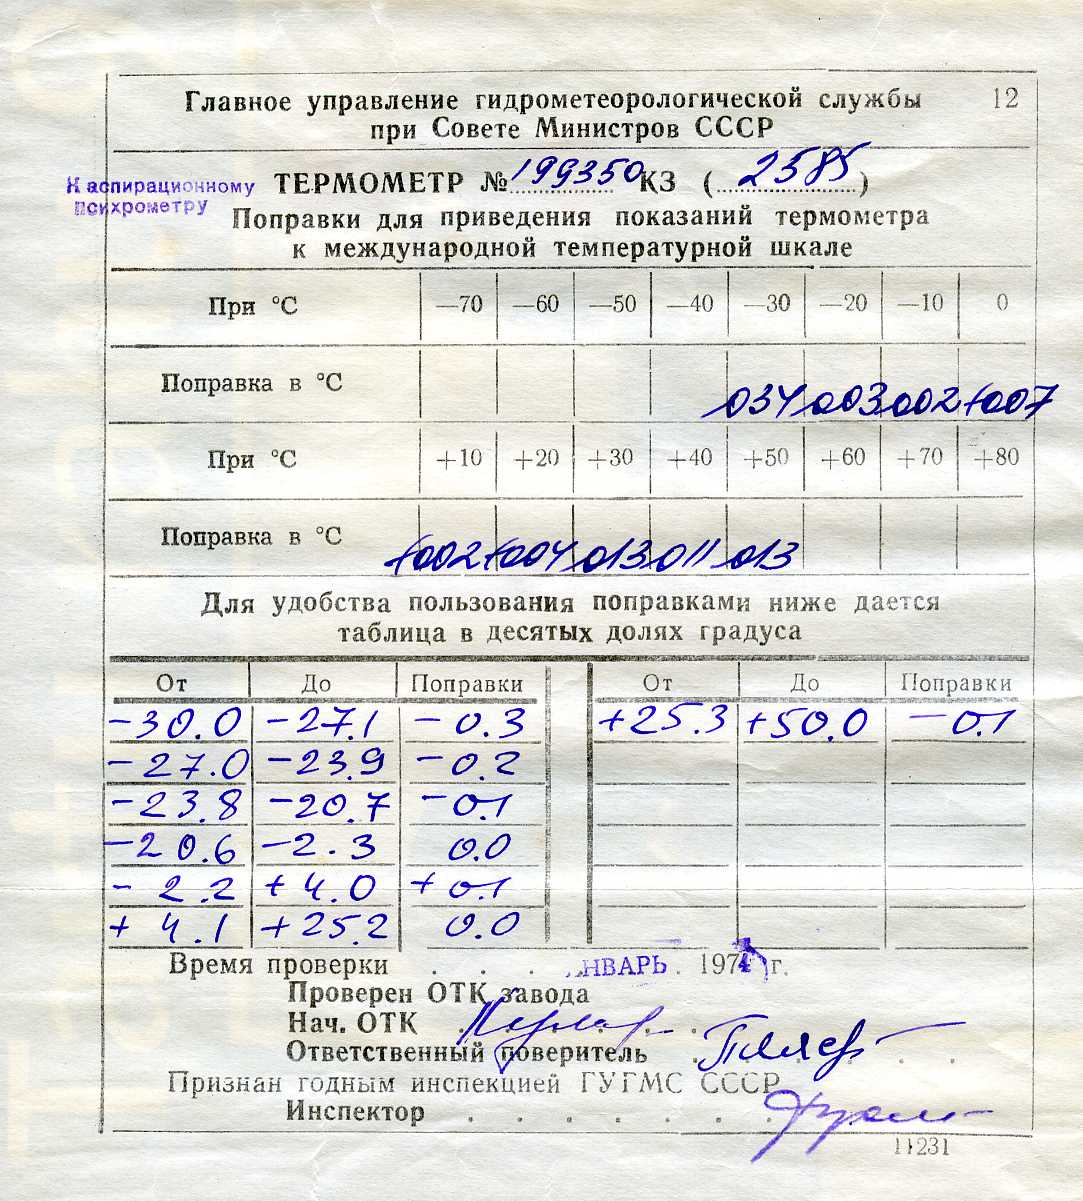 Главное управление гидрометеорологической службы 12
при Совете Министров СССР
К аспирационному
психрометру
ТЕРМОМЕТР № 199350 КЗ (2585)
Поправки для приведения показаний термометра
к международной температурной шкале
При °С —70 —60 —50 —40 —30 —20 —10 0
Поправка в °С 034 003 002 +007
При °С +10 +20 +30 +40 +50 +60 +70 +80
Поправка в °С +002 +004 013 011 013
Для удобства пользования поправками ниже дается
таблица в десятых долях градуса
От До Поправки От До Поправки
-30.0 -27.1 -0.3 +25.3 +50.0 -0.1
-27.0 -23.9 -0.2
-23.8 -20.7 -0.1
-20.6 -2.3 0.0
-2.2 +4.0 +0.1
+4.1 +25.2 0.0
Время проверки . . . ЯНВАРЬ . 197 г.
Проверен ОТК завода
Нач. ОТК
Ответственный поверитель
Признан годным инспекцией ГУГМС СССР
Инспектор . . . . . .
11231